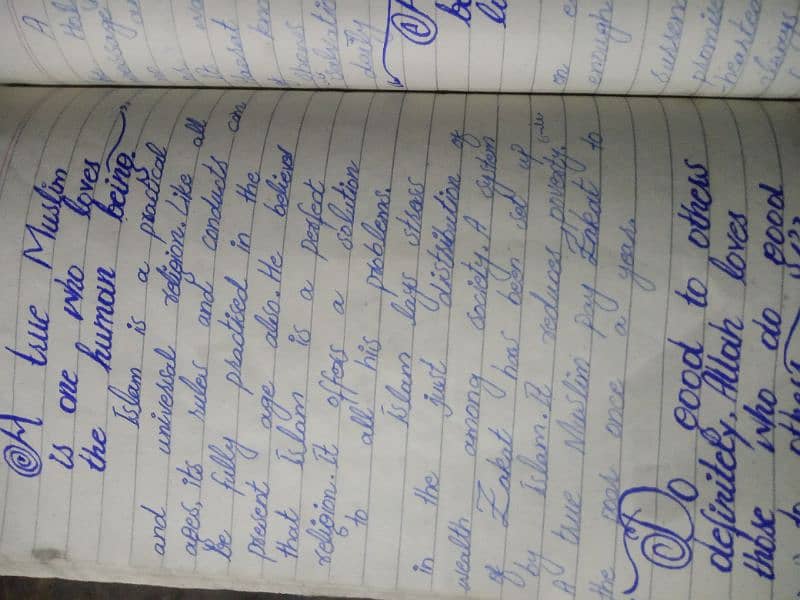 A true Muslim
is one who loves
the human being.
islam is a practical
and universal religion. Like all
ages, its rules and conducts can
be fully practised in the
present age also. He believes
that islam is a perfect
religion. it offers a solution
to all his problems.
islam lays stress
in the just distribution of
wealth among society. A system
of Zakat has been set up
by islam. it reduces poverty.
A true Muslim pay Zakat to
the poor once a year.
Do good to others
definitely, Allah loves
those who do good
to others
A
message
daily
be
enough
always